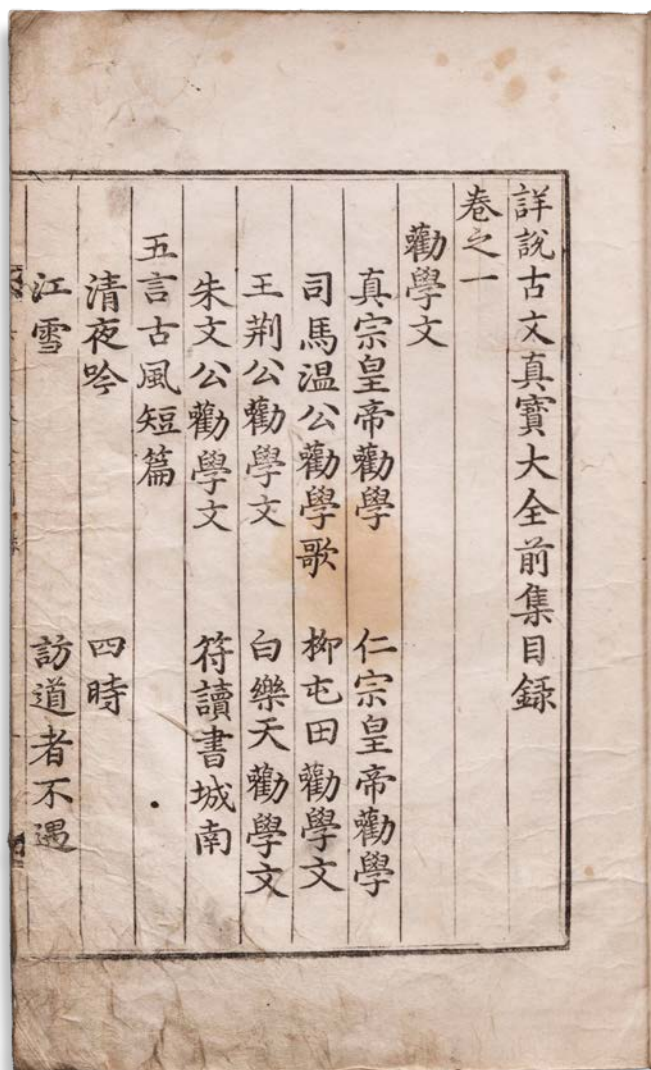 詳說古文真寶大全前集目錄
卷之一
勸學文
真宗皇帝勸學 仁宗皇帝勸學
司馬温公勸學歌 柳屯田勸學文
王荆公勸學文 白樂天勸學文
朱文公勸學文 符讀書城南
五言古風短篇
清夜吟 四時
江雪 訪道者不遇